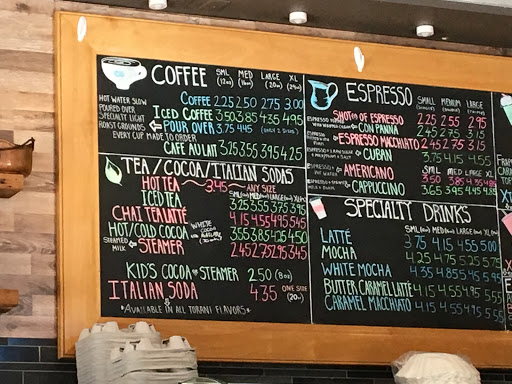 COFFEE SML (12oz) MED (16oz) LARGE (20oz) XL (24oz)
COFFEE 2.25 2.50 2.75 3.00
ICED COFFEE 3.50 3.85 4.35 4.95
HOT WATER SLOW POURED OVER SPECIALTY LIGHT ROAST GROUNDS
EVERY CUP MADE TO ORDER
POUR OVER 3.75 4.45 (ONLY 2 SIZES)
CAFÉ AU LAIT 3.25 3.55 3.95 4.25
TEA/COCOA/ITALIAN SODAS
HOT TEA 3.45 ANY SIZE
SML MED LARGE XL
ICED TEA 3.25 3.55 3.75 3.95
CHAI TEA LATTÉ 4.15 4.55 4.95 5.45
HOT/COLD COCOA WHITE 3.55 3.85 4.25 4.50
STEAMED MILK STEAMER 2.45 2.75 2.95 3.45
KID'S COCOA OR STEAMER 2.50 (8oz)
ITALIAN SODA 4.35 ONE SIZE (20oz)
*AVAILABLE IN ALL TORANI FLAVORS*
ESPRESSO SMALL MEDIUM LARGE
SHOT(S) OF ESPRESSO 2.25 2.55 2.95
CON PANNA 2.45 2.75 3.15
ESPRESSO MACCHIATO 2.45 2.75 3.15
CUBAN 3.75 4.15 4.55
SML MED LARGE XL
HOT WATER AMERICANO 3.50 3.85 4.35 4.95
CAPPUCCINO 3.65 3.95 4.45 4.95
SPECIALTY DRINKS
SML MED LARGE XL
LATTÉ 3.75 4.15 4.55 5.00
MOCHA 4.25 4.75 5.25 5.75
WHITE MOCHA 4.35 4.85 5.45 5.95
BUTTER CARAMEL LATTÉ 4.15 4.55 4.95 5.55
CARAMEL MACCHIATO 4.15 4.55 4.95 5.55